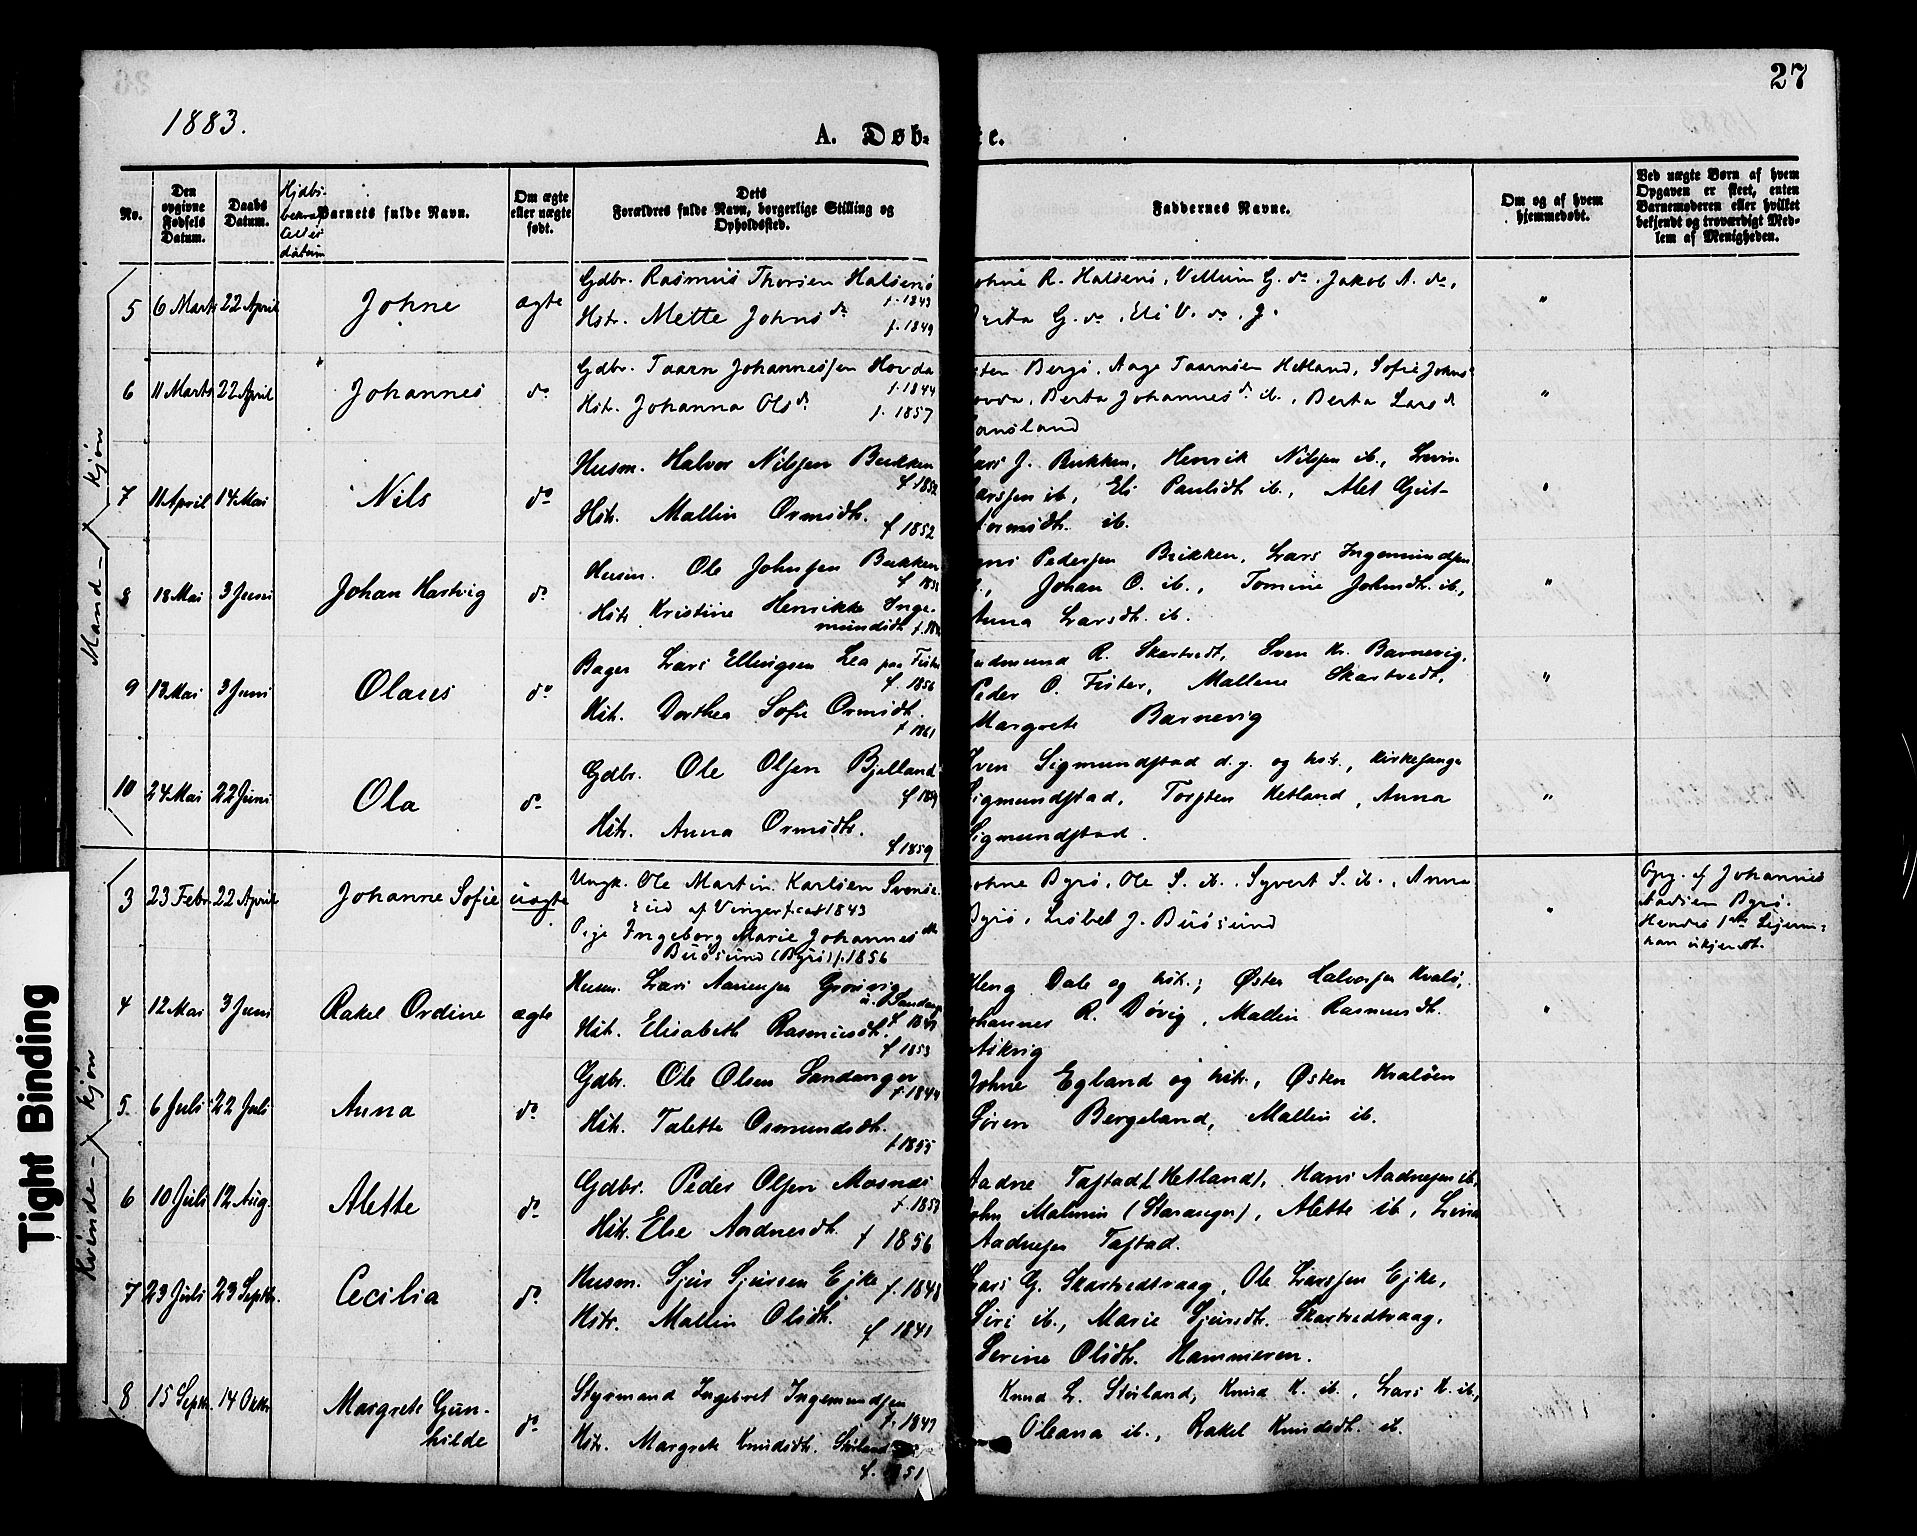 27
1883.
A. Døb- e.
No.
Den opgivne Fødsels Datum.
Daabs Datum.
Hjdbs.
datum
Barnets fulde Navn.
Om ægte eller uægte født.
Dets
Forældres fulde Navn, borgerlige Stilling og
Opholdssted.
Faddernes Navne.
Om og af hvem
hjemmedøbt.
Ved uægte Børn af hvem
Opgaven er skeet, enten
Barnemoderen eller hvilket
bekjendt og troværdigt Med-
lem af Menigheden.
Mand-kjøn
5 6 Marts 22 April Johne ægte Gdbr. Rasmus Thorsen Halsenø
f. 1843
Hstr. Mette Johnsdr f. 1849
ohne R. Halsenø, Vellum G. do, Jakob A. do,
G. do, Eli V. do, J.
"
6 11 Marts 22 April Johannes do Gdbr. Taarn Johannessen Hovda
f. 1844
Hstr. Johanna Olsdr f. 1857
sten Bergs, Aage Taarnsen Hetland, Sofie Johns
ovda, Berta Johannesdr ib., Berta Larsdr
ansland
"
7 11 April 14 Mai Nils do Husm. Halvor Nilssen Bukken
f 1852
Hstr. Mallin Ormsdtr. f 1852
Lars J. Bukken, Henrik Nilssen ib.,
arssen ib, Eli Paulsdtr ib., Alet Gut-
tormsdtr. ib.
"
8 18 Mai 3 Juni Johan Hartvig do Husm. Ole Johnsen Bukken
Hstr Kristine Henrikke Inge-
mundsdtr
Pedersen Bukken, Lars Ingemundsen
Johan O. ib., Tomine Johnsdtr. ib.,
Anna Larsdtr. ib.
"
9 13 Mai 3 Juni Olaus do Bager Lars Ellingsen Lea paa Fister
f. 1856
Hstr. Dorthea Sofie Ormsdtr.
f 1861
udmund R. Skartvedt, Sven Kr. Barnevig,
Peder O. Fister, Mallene Skartvedt,
Margrete Barnevig
"
10 24 Mai 22 Juni Ola do Gdbr. Ole Olsen Bjelland
Hstr. Anna Ormsdtr.
f 1859
Iven Sigmundstad d.y. og hstr., Kirkesange
Sigmundstad, Torsten Hetland, Anna
Sigmundstad.
"
Kvinde-kjøn
3 23 Febr. 22 April Johanne Sofie uægte Ungk. Ole Martin Karlsen Svense-
rud af Vinger f. ca 1843
Pige Ingeborg Marie Johannesdtr
Buøsund (Byrø) f. 1856
ohne Byrø, Ole S. ib., Syvert S. ib., Anna
Byrø, Lisbet J. Buøsund
"
Opg. af Johannes
Byrø.
Hendes 1ste Lejerm:
han ukjendt.
4 12 Mai 3 Juni Rakel Ordine ægte Husm. Lars Aanensen Grønvig
u. Sandanger
f 1849
Hstr. Elisabeth Rasmusdtr.
f 1853
Heng Dale og hstr., Østen Halvorsen Kvalø,
ohannes R. Døvig, Mallin Rasmusdtr.
Askvig
"
5. 6 Juli 22 Juli Anna do Gdbr. Ole Olsen Sandanger
f 1844
Hstr. Talette Osmundsdtr.
f 1855
Johne Egland og hstr., Østen Kvaløen
Søren Bergeland, Mallin ib.
6 10 Juli 12 Aug. Alette do Gdbr. Peder Olsen Mosnæs
f. 1857
Hstr. Else Aadnesdtr. f 1856
Aadne Tastad (Hetland), Hans Aadnesen ib.
John Malmin (Stavanger), Alette ib,
Aadnesen Tastad.
7 23 Juli 23 Septbr. Cecilia do Husm. Sjur Sjursen Ejke f. 1848
Hstr. Mallin Olsdtr. f 1841
Lars G. Skartvedtvaag, Ole Larssen Ejke,
Siri ib., Marie Sjursdtr. Skartvedtvaag,
Serine Olsdtr. Hammeren.
8 15 Septbr. 14 Oktbr Margrete Gun-
hilde do Styrmand Ingebret Ingemundsen
f. 1849
Hstr. Margrete Knudsdtr. Støland
f. 1851
Knud L. Støland, Knud K. ib., Lars K. ib.,
Oleana ib., Rakel Knudsdtr. ib.
Tight Binding